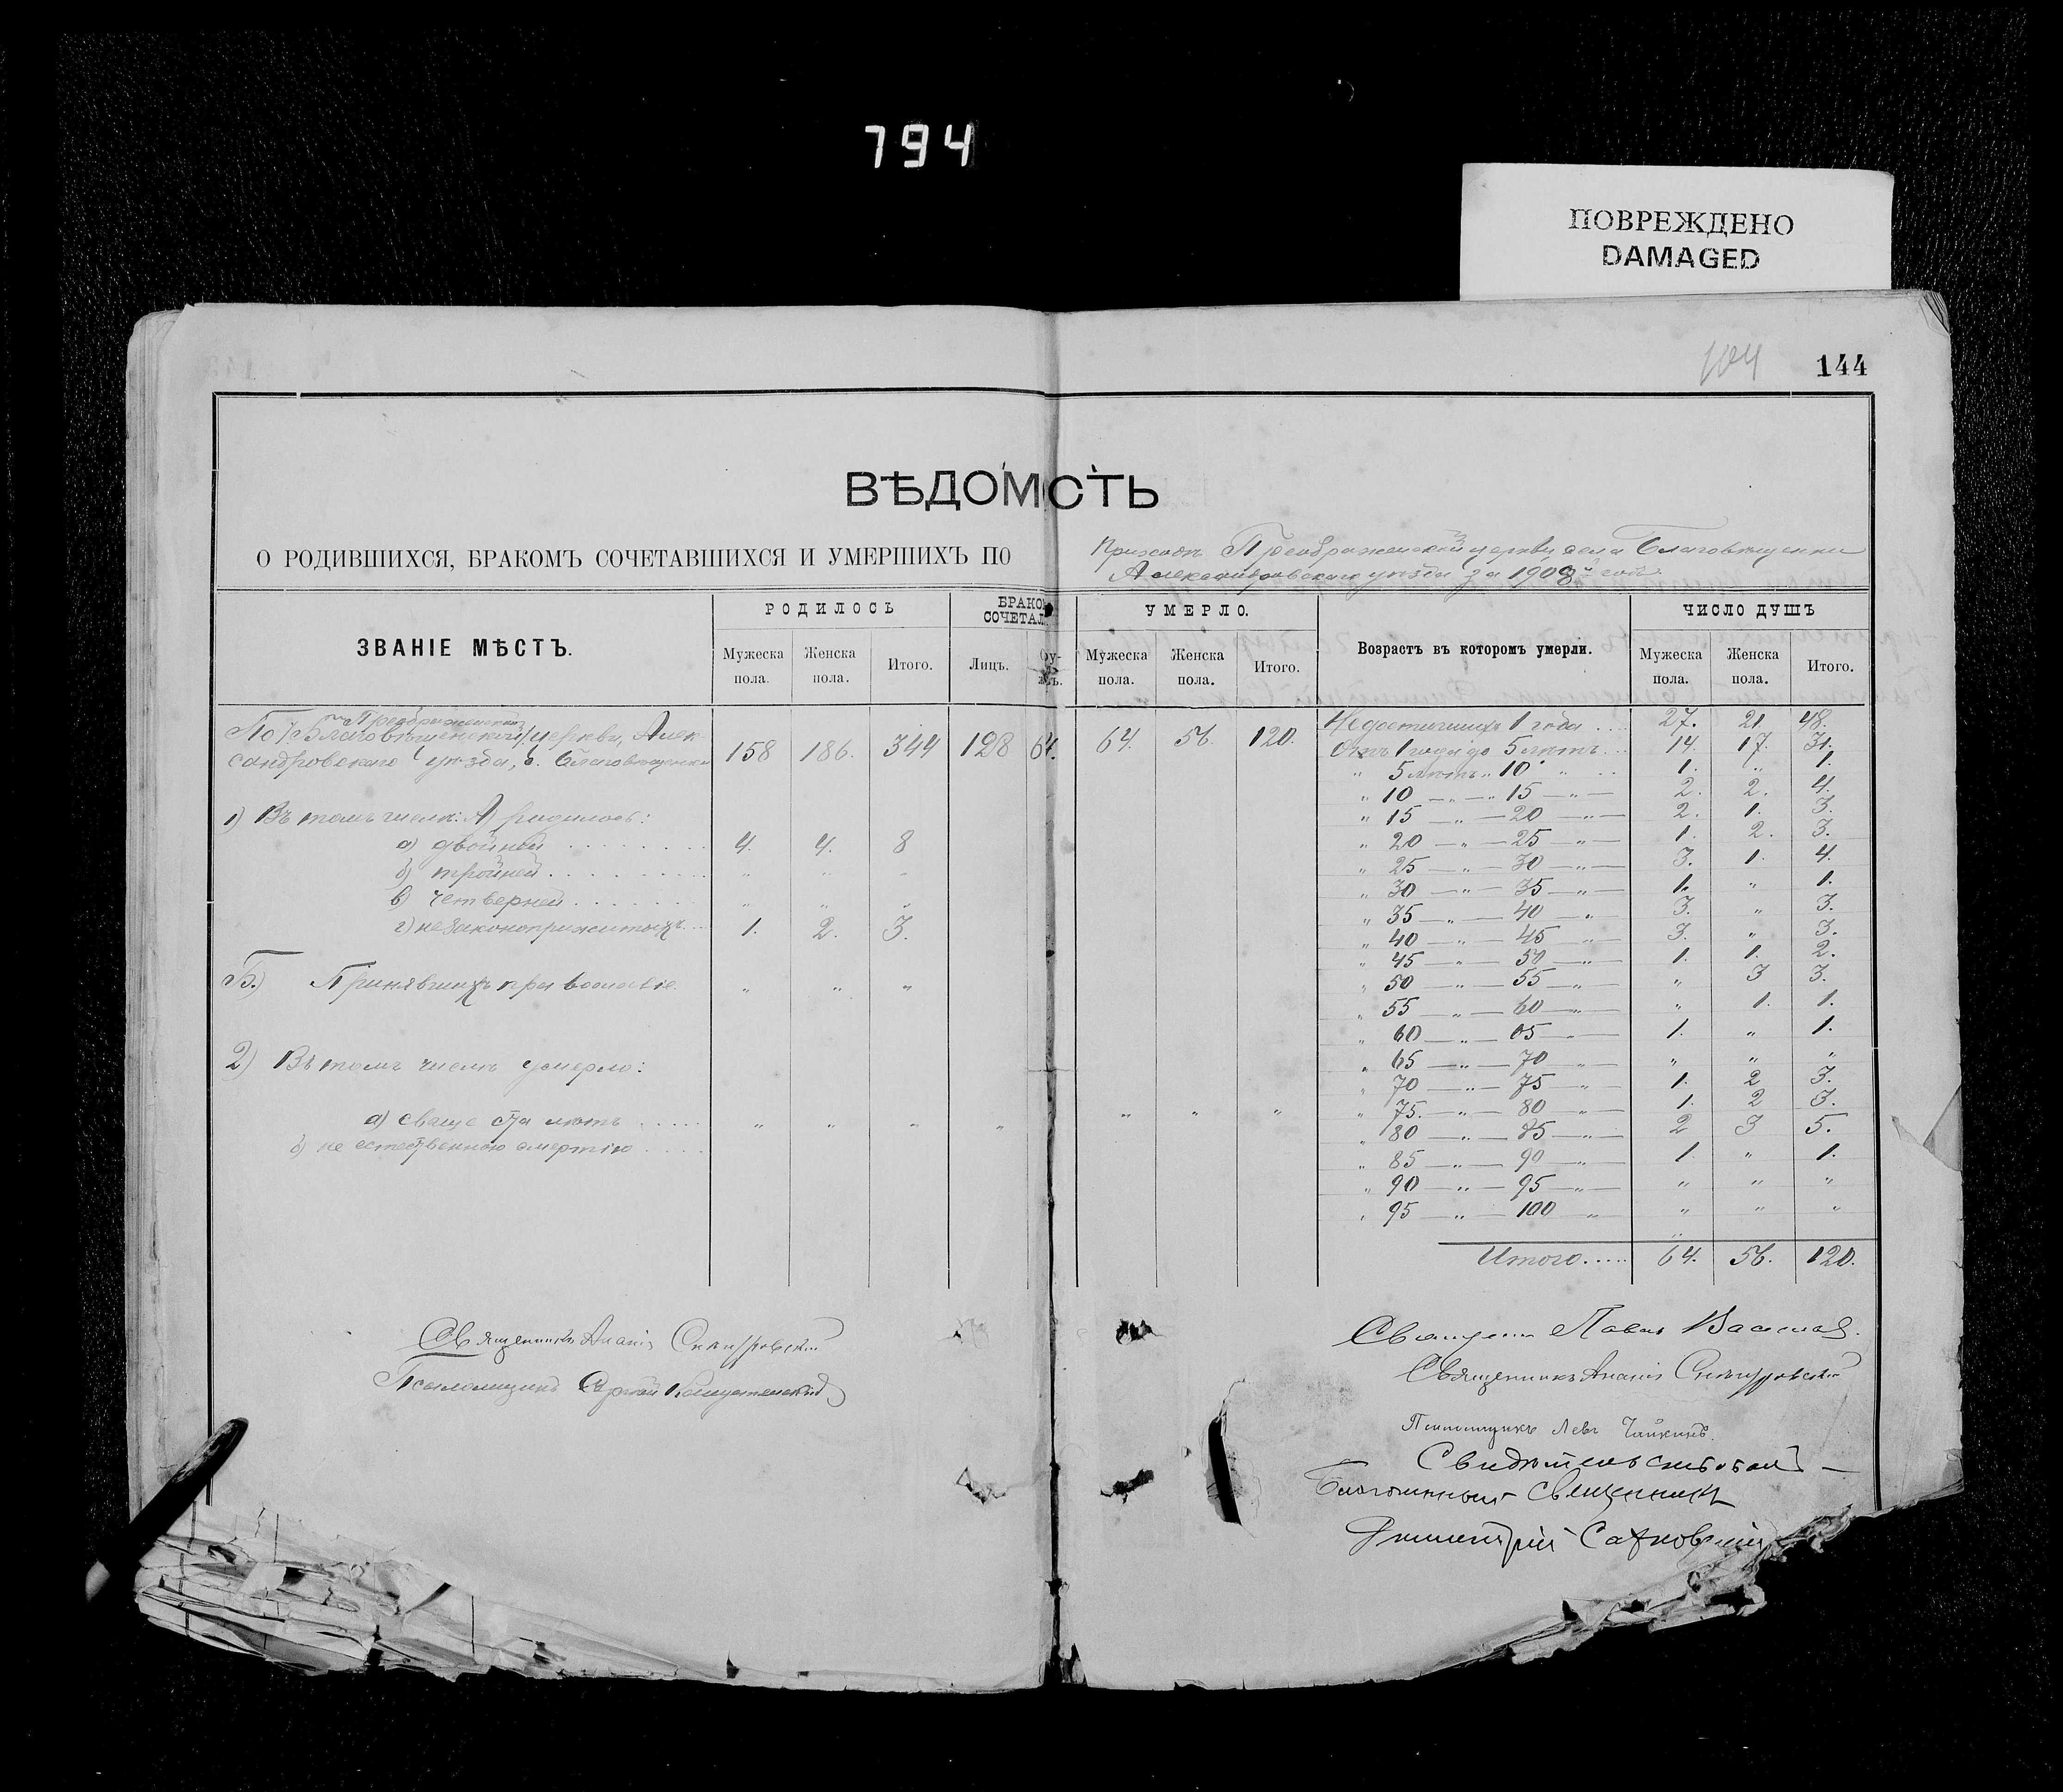 794
ПОВРЕЖДЕНО
DAMAGED
104
144
ВѢДОМОСТЬ
О РОДИВШИХСЯ, БРАКОМЪ СОЧЕТАВШИХСЯ И УМЕРШИХЪ ПО
Преображенской церкви села Благовѣщенки
Александровскаго уѣзда за 1908й годъ
ЗВАНІЕ МѢСТЪ.
РОДИЛОСЬ
БРАКО
СОЧЕТАЛ
УМЕРЛО.
Возрастъ въ которомъ умерли.
ЧИСЛО ДУШЪ
Мужеска пола. Женска пола. Итого. Лицъ. Мужеска пола. Женска пола. Итого. Мужеска пола. Женска пола. Итого.
Преображенской
По Благовѣщенской церкви, Алек-
сандровскаго уѣзда, с. Благовѣщенки 158 186. 344 128 64. 64. 56. 120.
1) Въ томъ числѣ: А) родилось:
а) двойней 4. 4. 8
б) тройней " " "
в) четверней " " "
г) незаконноприжитыхъ 1. 2. 3.
Б.) Принявшихъ православіе " " "
2) Въ томъ числѣ умерло:
а) свыше ста лѣтъ " " " " " " "
б) не естественною смертію
Недостигшихъ 1 года 27. 21. 48.
Отъ 1 года до 5 лѣтъ 14. 17. 31.
" 5 лѣтъ " 10 " 1. " 1.
" 10 — " — 15 — " — 2. 2. 4.
" 15 — " — 20 — " — 2. 1. 3.
" 20 — " — 25 — " — 1. 2. 3.
" 25 — " — 30 — " — 3. 1. 4.
" 30 — " — 35 — " — 1. " 1.
" 35 — " — 40 — " — 3. " 3.
" 40 — " — 45 — " — 3. " 3.
" 45 — " — 50 — " — 1. 1. 2.
" 50 — " — 55 — " — " 3 3.
" 55 — " — 60 — " — " 1. 1.
" 60 — " — 65 — " — 1. " 1.
" 65 — " — 70 — " — " " "
" 70 — " — 75 — " — 1. 2 3.
" 75. — " — 80 — " — 1. 2 3.
" 80 — " — 85 — " — 2 3 5.
" 85 — " — 90 — " — 1. " 1.
" 90 — " — 95 — " — " " "
" 95 — " — 100 — " — " " "
Итого..... 64. 56. 120.
Священникъ Ананій
Псаломщикъ Сергѣй
Павелъ
Священникъ Ананій
Псаломщикъ Левъ Чайкинъ.
Свидѣтельствовалъ —
Благочинный Священникъ
Димитрій